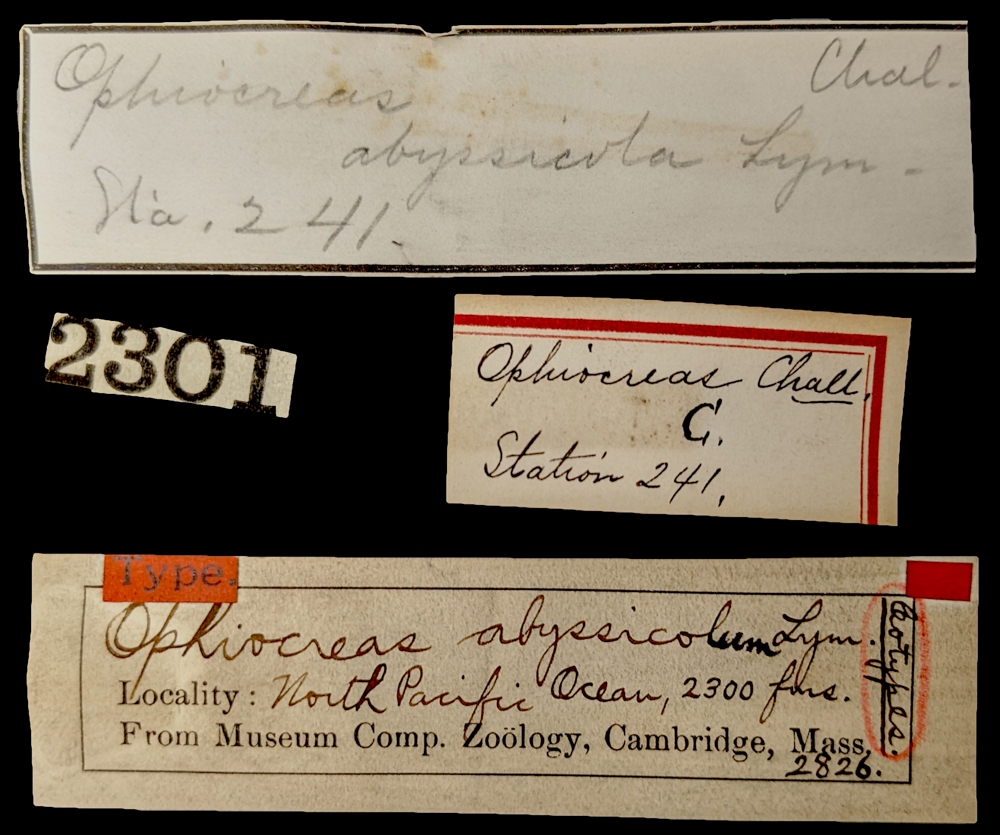 Ophiocreas Chal.
abyssicola Lym.
Sta. 241.
2301
Ophiocreas Chall.
C.
Station 241.
Type.
Ophiocreas abyssicolum Lym.
Locality: North Pacific Ocean, 2300 fms.
From Museum Comp. Zoölogy, Cambridge, Mass.
2826.
Cotypes.